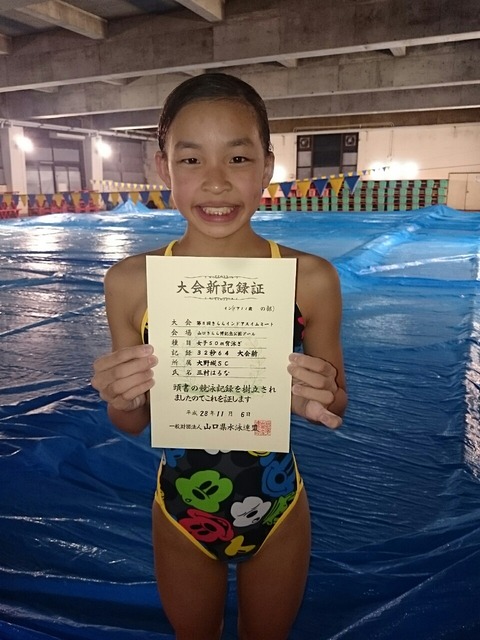 大会新記録証
大会 第5回きららインドアスイムミート
会場 山口きらら博記念公園プール
種目 女子50m背泳ぎ
記録 32秒64 大会新
所属 大野城SC
氏名 三村はるな
頭書の競泳記録を樹立され
ましたのでこれを証します
平成 28年11月 6日
一般財団法人 山口県水泳連盟